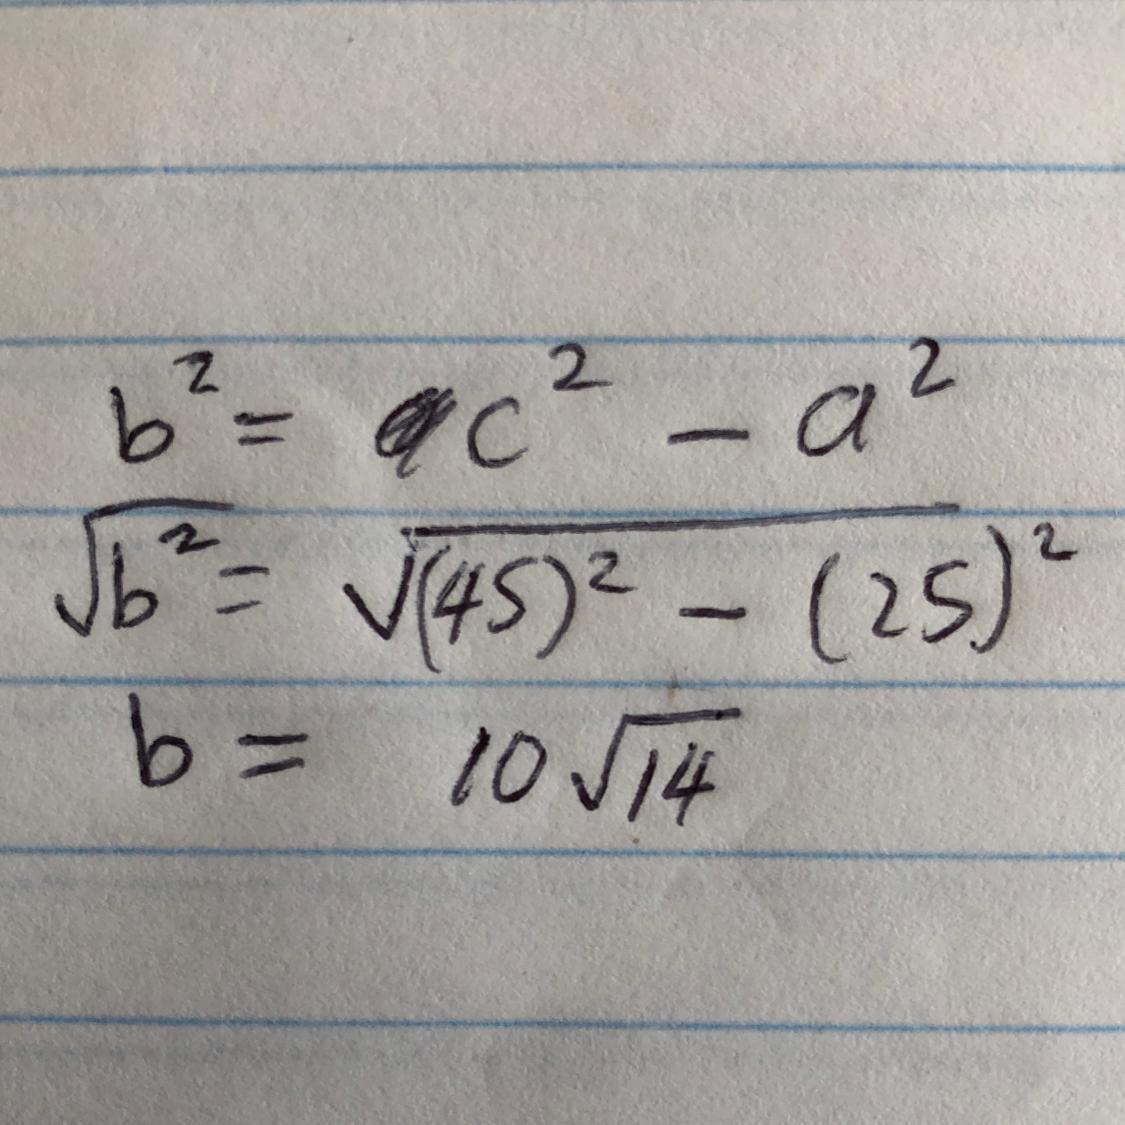 b² = c² - a²
√b² = √(45)² - (25)²
b = 10√14